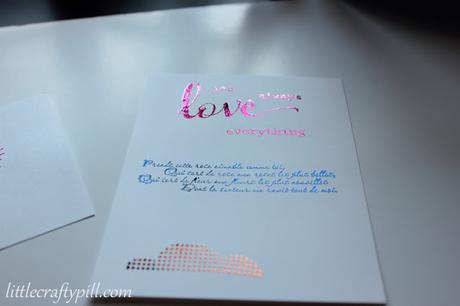 always
love
everything
Prends cette rose aimable comme toi,
Qui sert de rose aux roses les plus belles,
Qui sert de fleur aux fleurs les plus nouvelles,
Dont la senteur me ravit tout de moi.
littlecraftypill.com